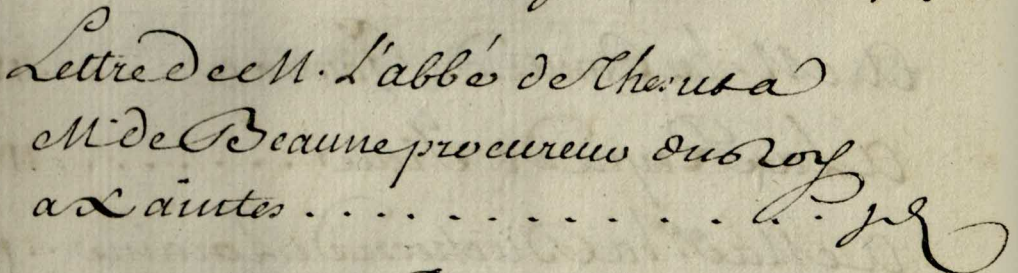 Lettre de M. L'abbé de Thesut a
Mr de Beaune procureur du Roy
a Xaintes . . . . . . . . . . . . . .